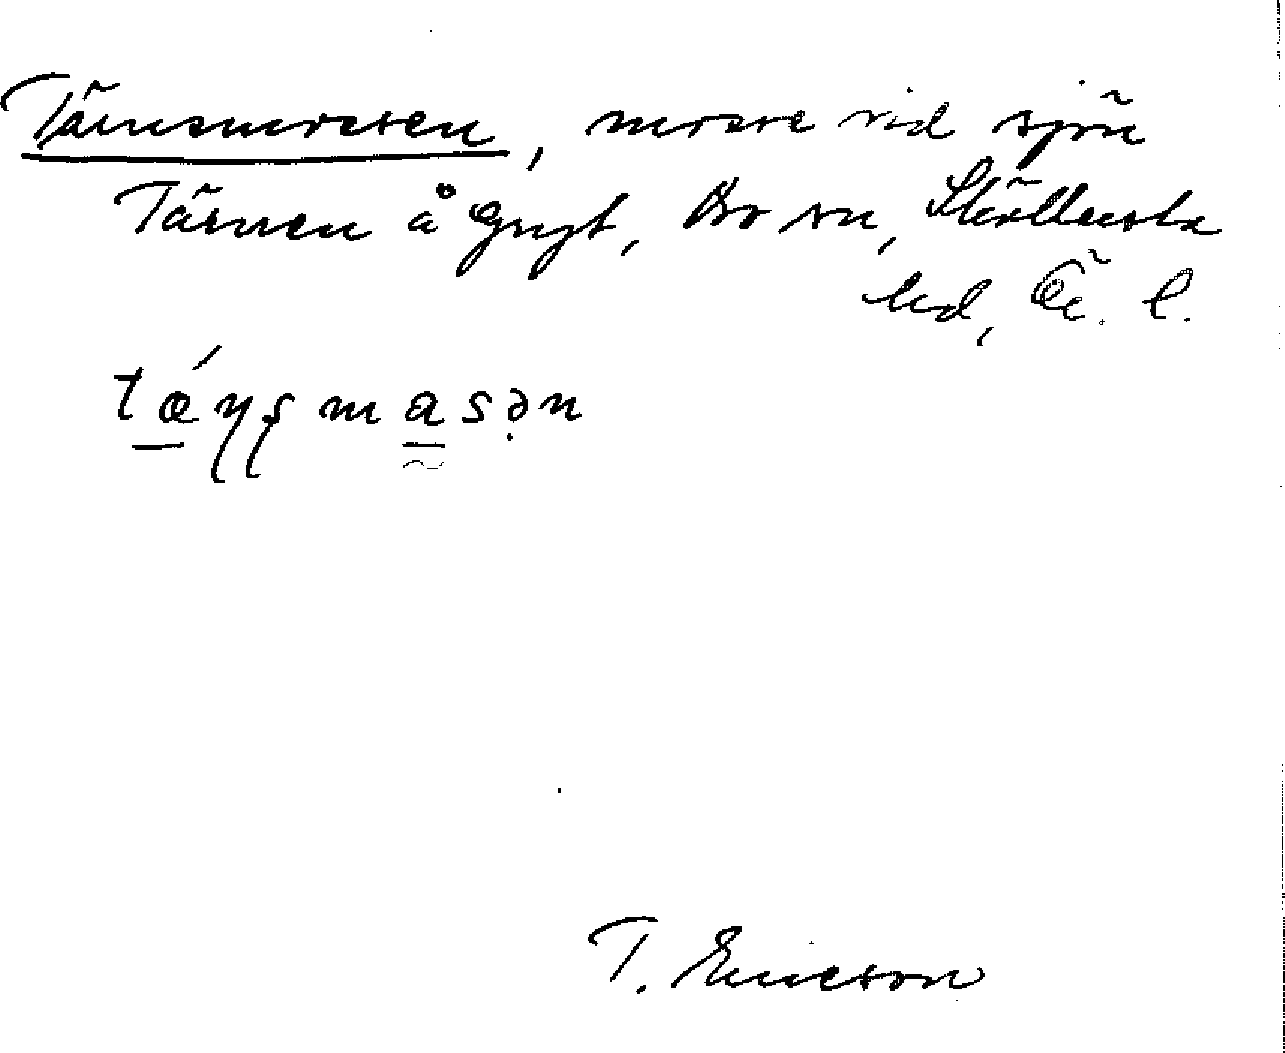 Tärnsmossen, mosse vid sjön
Tärnen å Gryt, Bo sn, Sköllersta
hd, Ö. l.
tǽṇṣmasən
T. Ericson